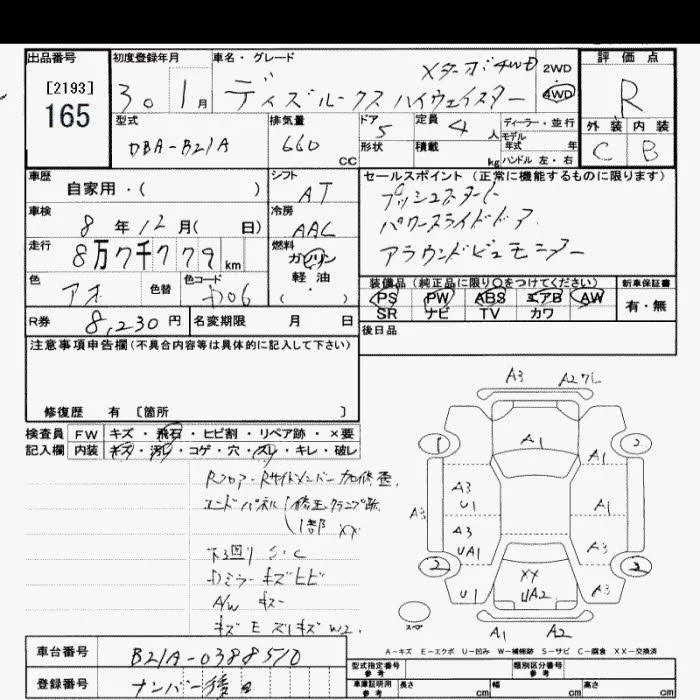 出品番号
[2193]
165
初度登録年月
30 1月
車名・グレード
Xターボ4WD
デイズルークス ハイウェイスター
2WD
4WD
評価点
R
外装 内装
C B
型式
DBA-B21A
排気量
660 CC
ドア
5
形状
定員
4人
積載
kg
ディーラー・並行
モデル
年式 年
ハンドル 左・右
車歴
自家用・( )
シフト
AT
車検
8年12月( 日)
冷房
AAC
走行
8万7千779 km
燃料
ガソリン
軽・油
( ・ )
色
アオ
色替
色コード
セールスポイント (正常に機能するものに限ります)
プッシュスタート
パワースライドドア
アラウンドビューモニター
装備品 (純正品に限り○をつけてください)
PS PW ABS エアB AW
SR ナビ TV カワ
新車保証書
有・無
R券
8,230 円
名変期限 月 日
後日品
注意事項申告欄 (不具合内容等は具体的に記入して下さい)
修復歴 有 [箇所 ]
検査員
記入欄
FW キズ・飛石・ヒビ割・リペア跡・×要
内装 キズ・汚レ・コゲ・穴・スレ・キレ・破レ
Rフロア・Rサイドメンバー
エンドパネル
修正クランプ跡
1部 XX
下回り S・C
ミラー キズヒビ
A/W キズ
キズ E W2.
A3
A1
1
A3
U1
A3
A3
UA1
U1
A1
A1
A3
2
A3
XX
UA2
スペア
A1
A2
A-キズ E-エクボ U-凹み W-補修跡 S-サビ C-腐食 XX-交換済
車台番号
B21A-0388510
登録番号
ナンバー後日
型式指定番号
参考
類別区分番号
参考
車庫証明用
参考
長さ cm
幅 cm
高さ cm